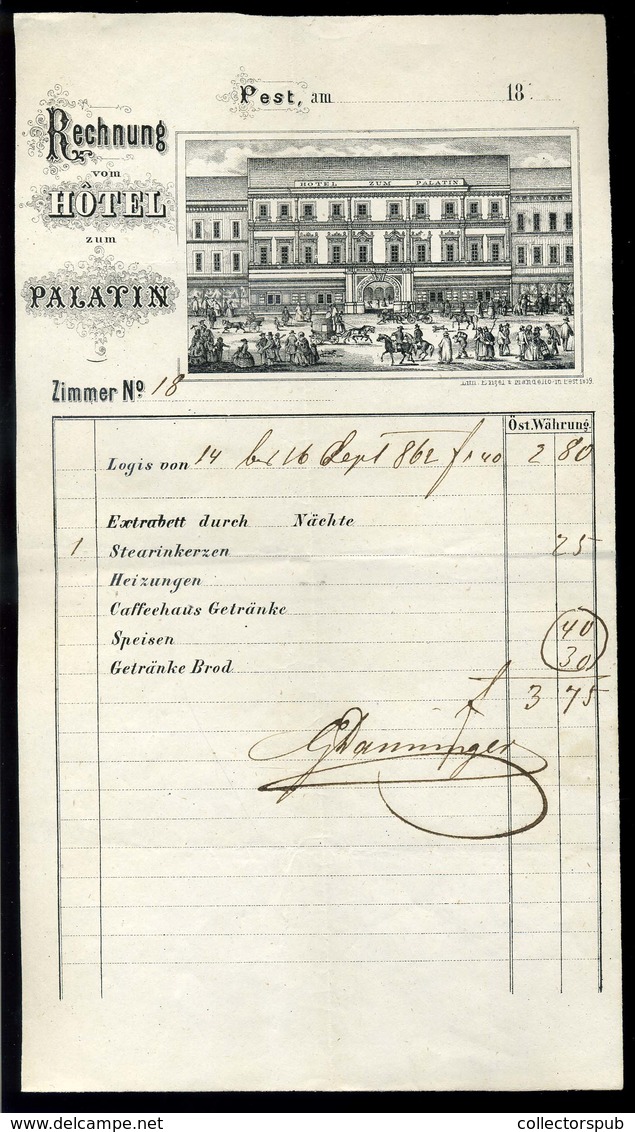 Pest, am 18
Rechnung
vom
HÔTEL
zum
PALATIN
HOTEL ZUM PALATIN
Zimmer No. 18
Öst. Währung
Logis von 14 bis 16 Sept 862 f 1 40 2 80
Extrabett durch Nächte
1 Stearinkerzen 25
Heizungen
Caffeehaus Getränke
Speisen 40
Getränke Brod 30
f 3 75
G Danninger
www.delcampe.net
collectorspub